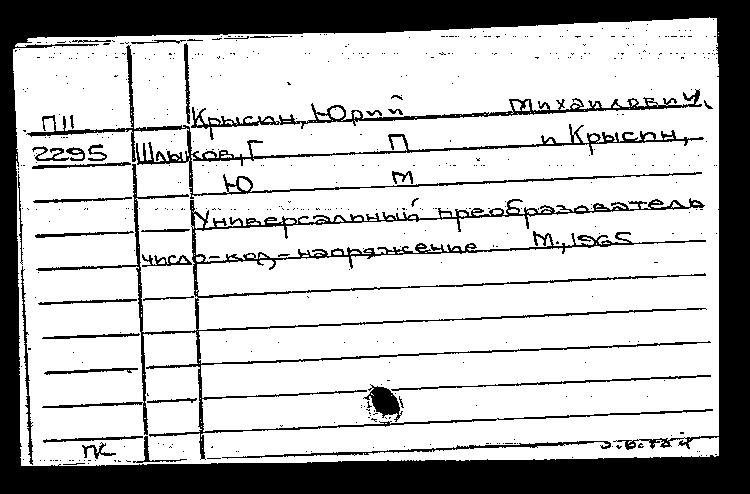 Крысин, Юрий Михайлович.
П11
2295 Шлыков, Г П и Крысин,
Ю М
Универсальный преобразователь
число-код-напряжение М., 1965
ПК